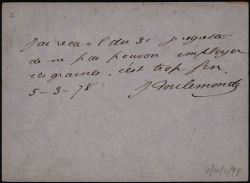 J'ai reçu l du 3c je regrette
de ne pas pouvoir employer
ces graines, c'est trop fin.
5-3-78 J Doulemond